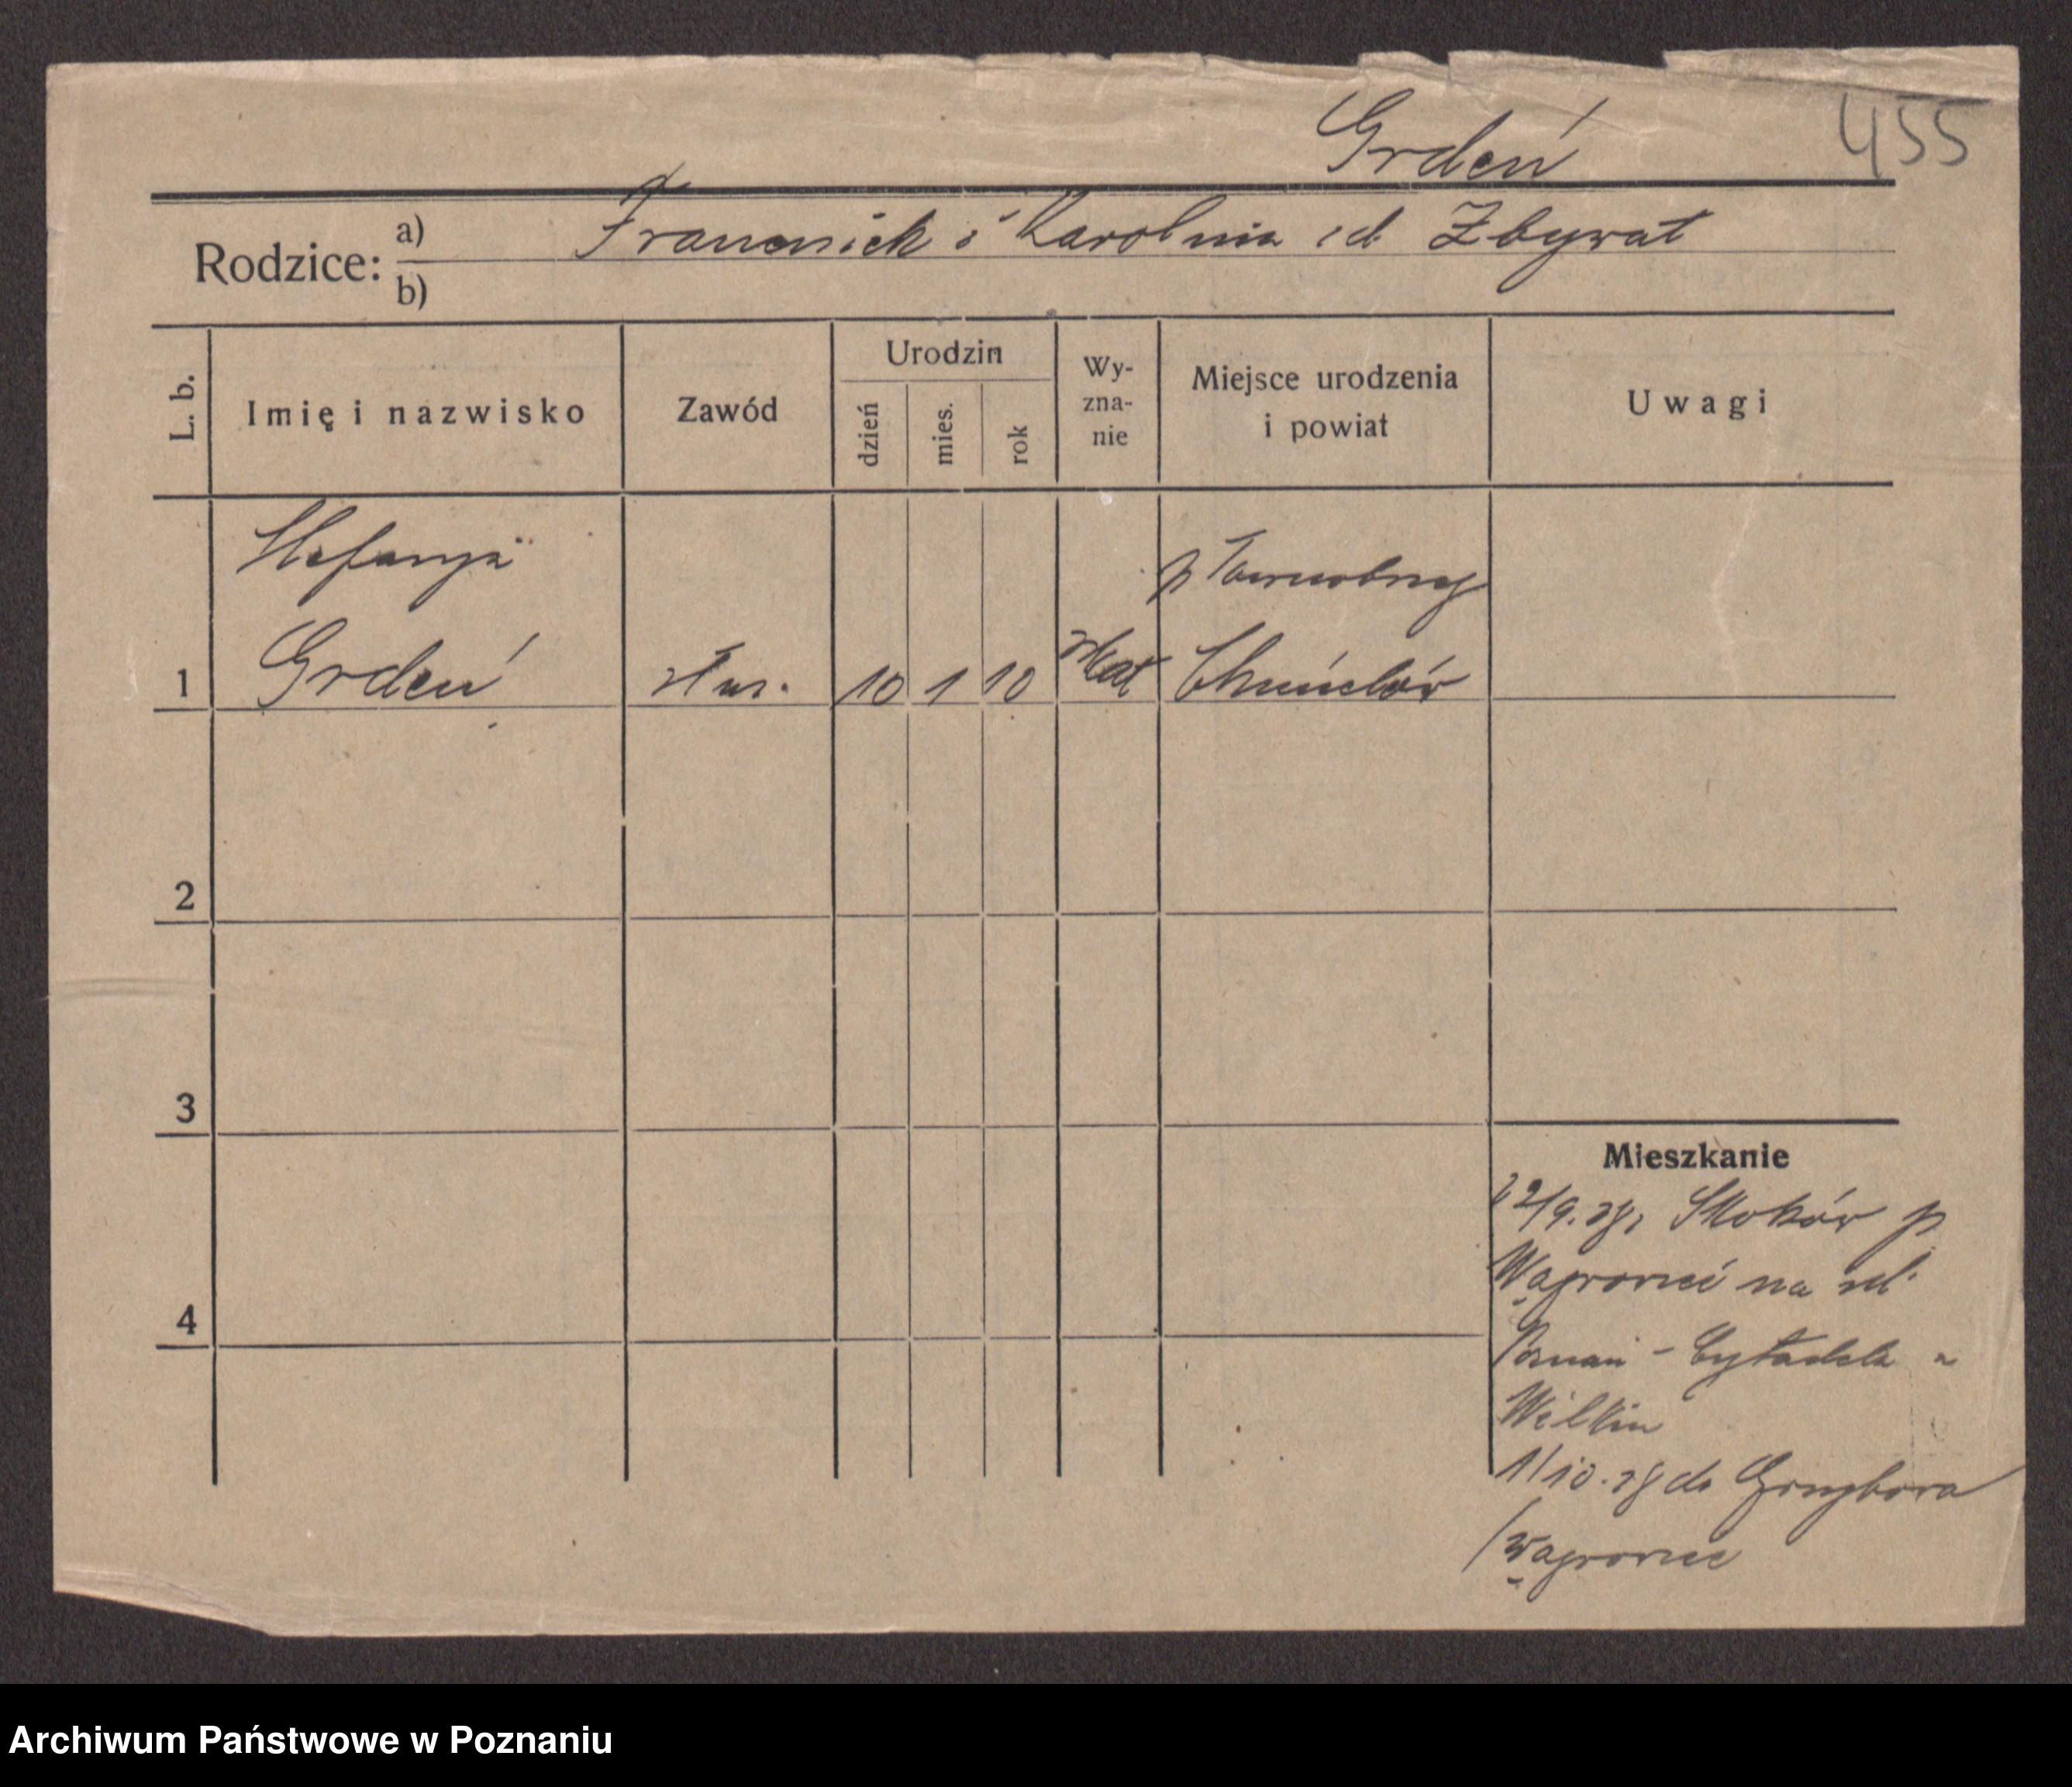 Grdeń 455
Rodzice: a) Franciszek i Karolina zd Zbyrat
b)
L. b. Imię i nazwisko Zawód Urodzin dzień mies. rok Wyznanie Miejsce urodzenia i powiat Uwagi
Stefanja p Tarnobrzeg
1 Grdeń 10 1 10 Kat Chmielów
2
3
Mieszkanie
22/9. Skoków p
4 Wągrowiec na
Poznań - Cytadela
1/10. do Grzybowa
/Wągrowiec
Archiwum Państwowe w Poznaniu